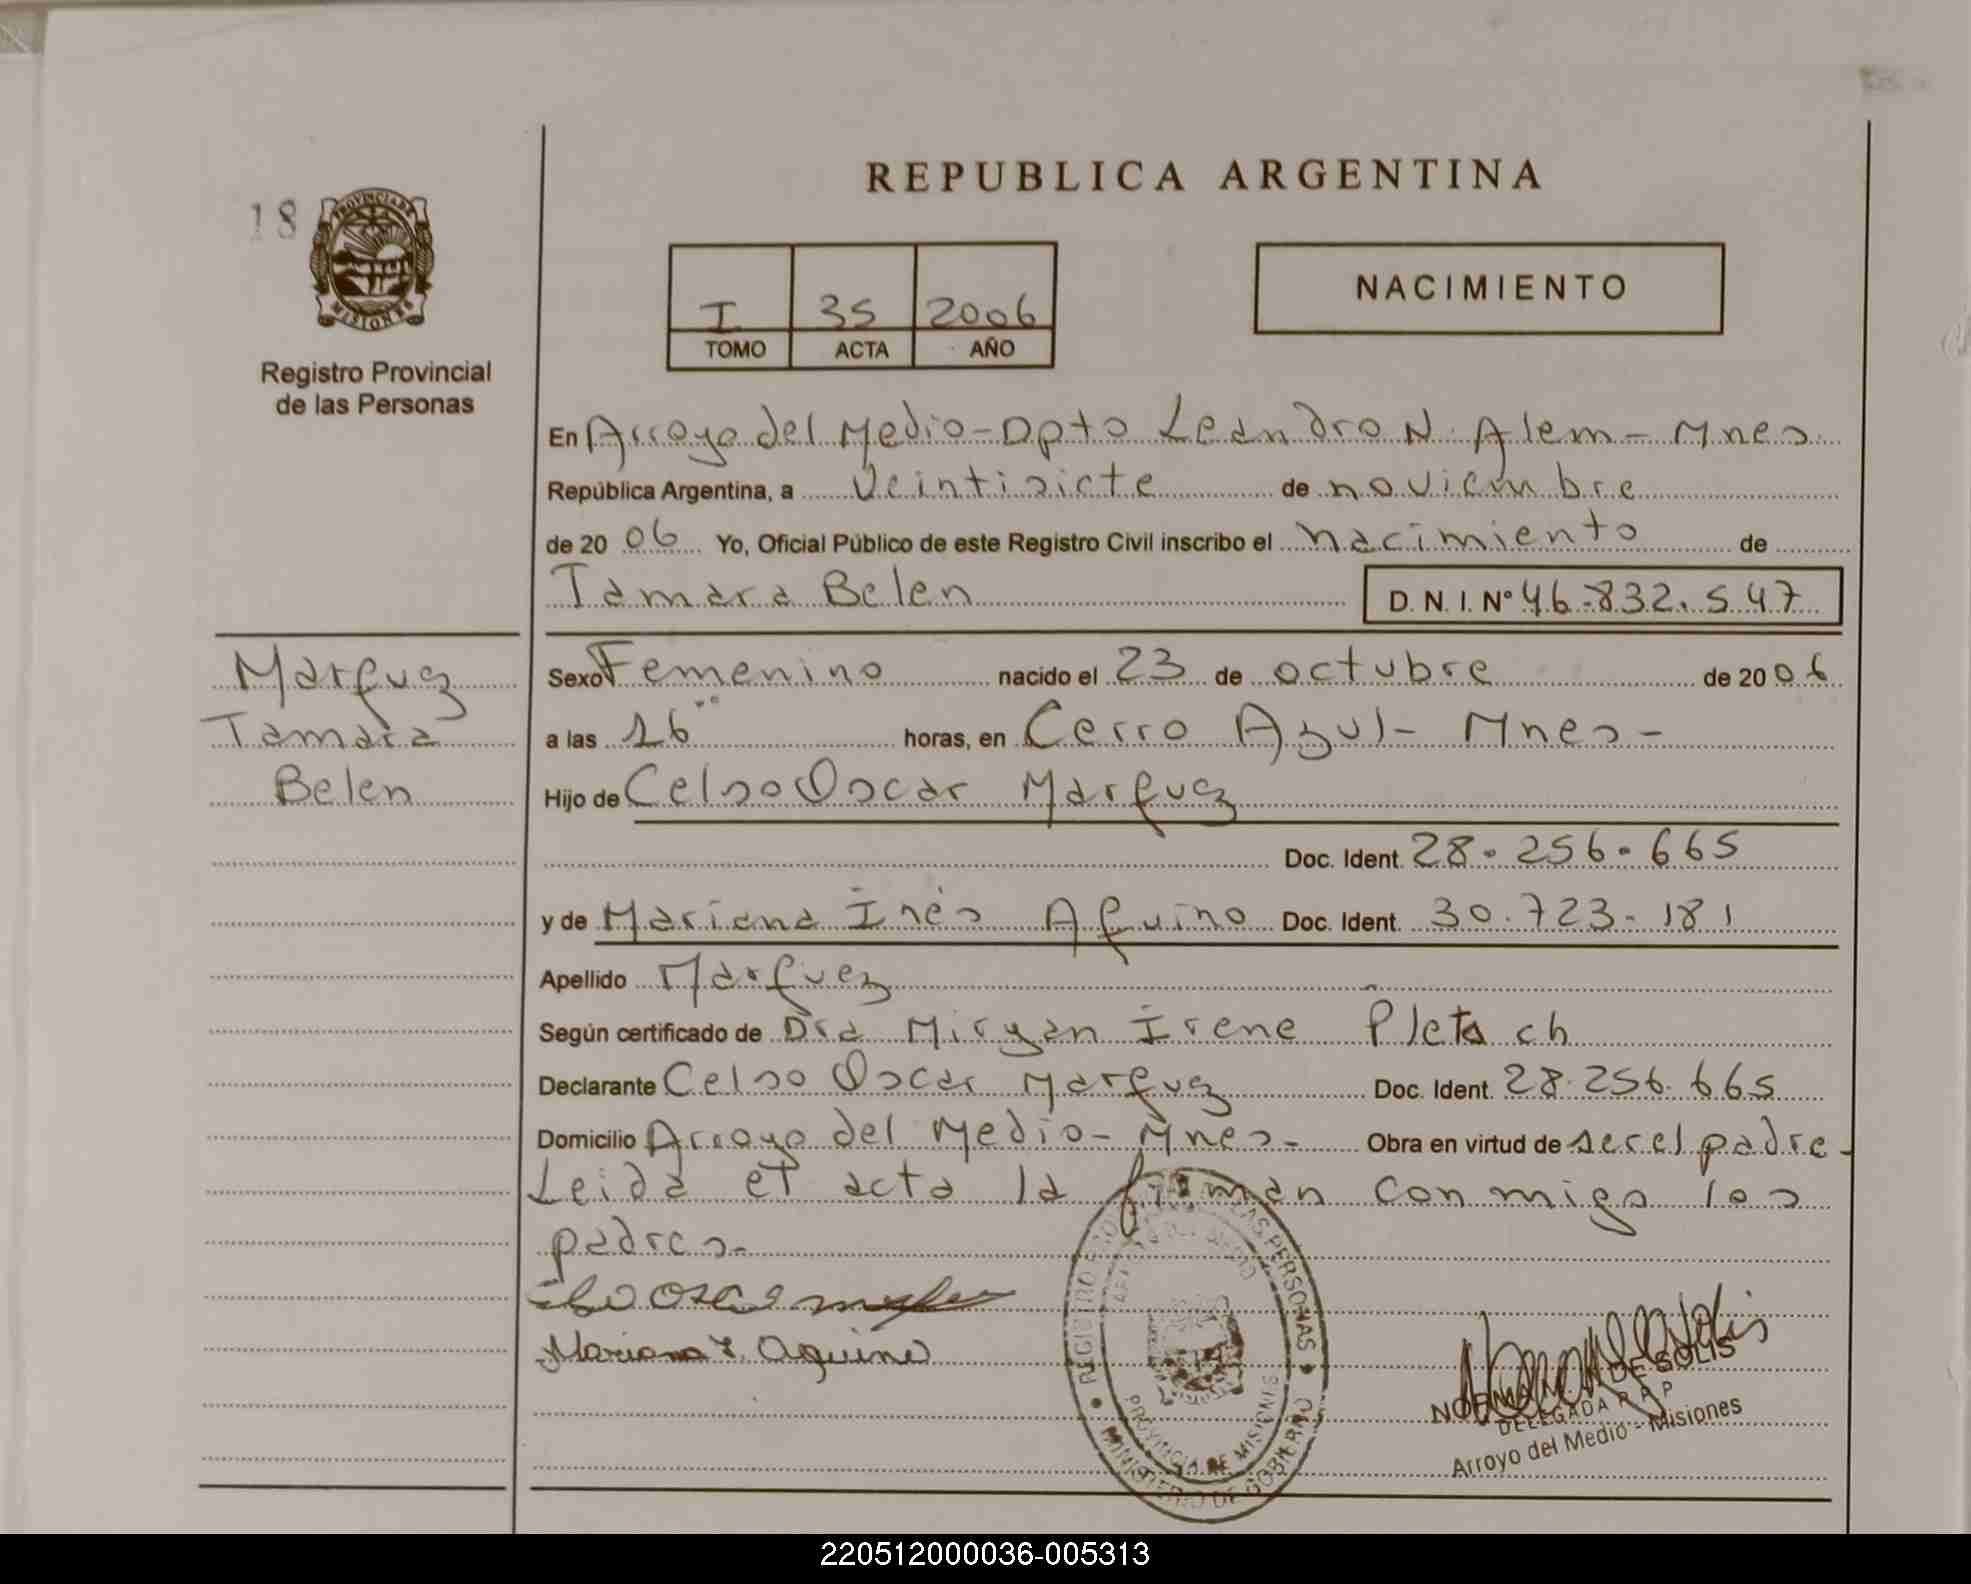 REPUBLICA ARGENTINA
18
PROVINCIA DE MISIONES
Registro Provincial
de las Personas
I 35 2006
TOMO ACTA AÑO
NACIMIENTO
En Arroyo del Medio - Dpto Leandro N. Alem - Mnes.
República Argentina, a veintisiete de noviembre
de 20 06 Yo, Oficial Público de este Registro Civil inscribo el nacimiento de
Tamara Belen D. N. I. N° 46.832.547
Marquez
Tamara
Belen
Sexo Femenino nacido el 23 de octubre de 20 06
a las 16°° horas, en Cerro Azul - Mnes -
Hijo de Celso Oscar Marquez
Doc. Ident. 28.256.665
y de Mariana Inés Aquino Doc. Ident. 30.723.181
Apellido Marquez
Según certificado de Dra Miryan Irene Pletsch
Declarante Celso Oscar Marquez Doc. Ident. 28.256.665
Domicilio Arroyo del Medio - Mnes - Obra en virtud de ser el padre -
Leida el acta la firman conmigo los
padres.
Mariana I. Aquino
REGISTRO DE LAS PERSONAS
PROVINCIA DE MISIONES
MINISTERIO DE GOBIERNO
DE SOLIS
DELEGADA R P
Arroyo del Medio - Misiones
220512000036-005313